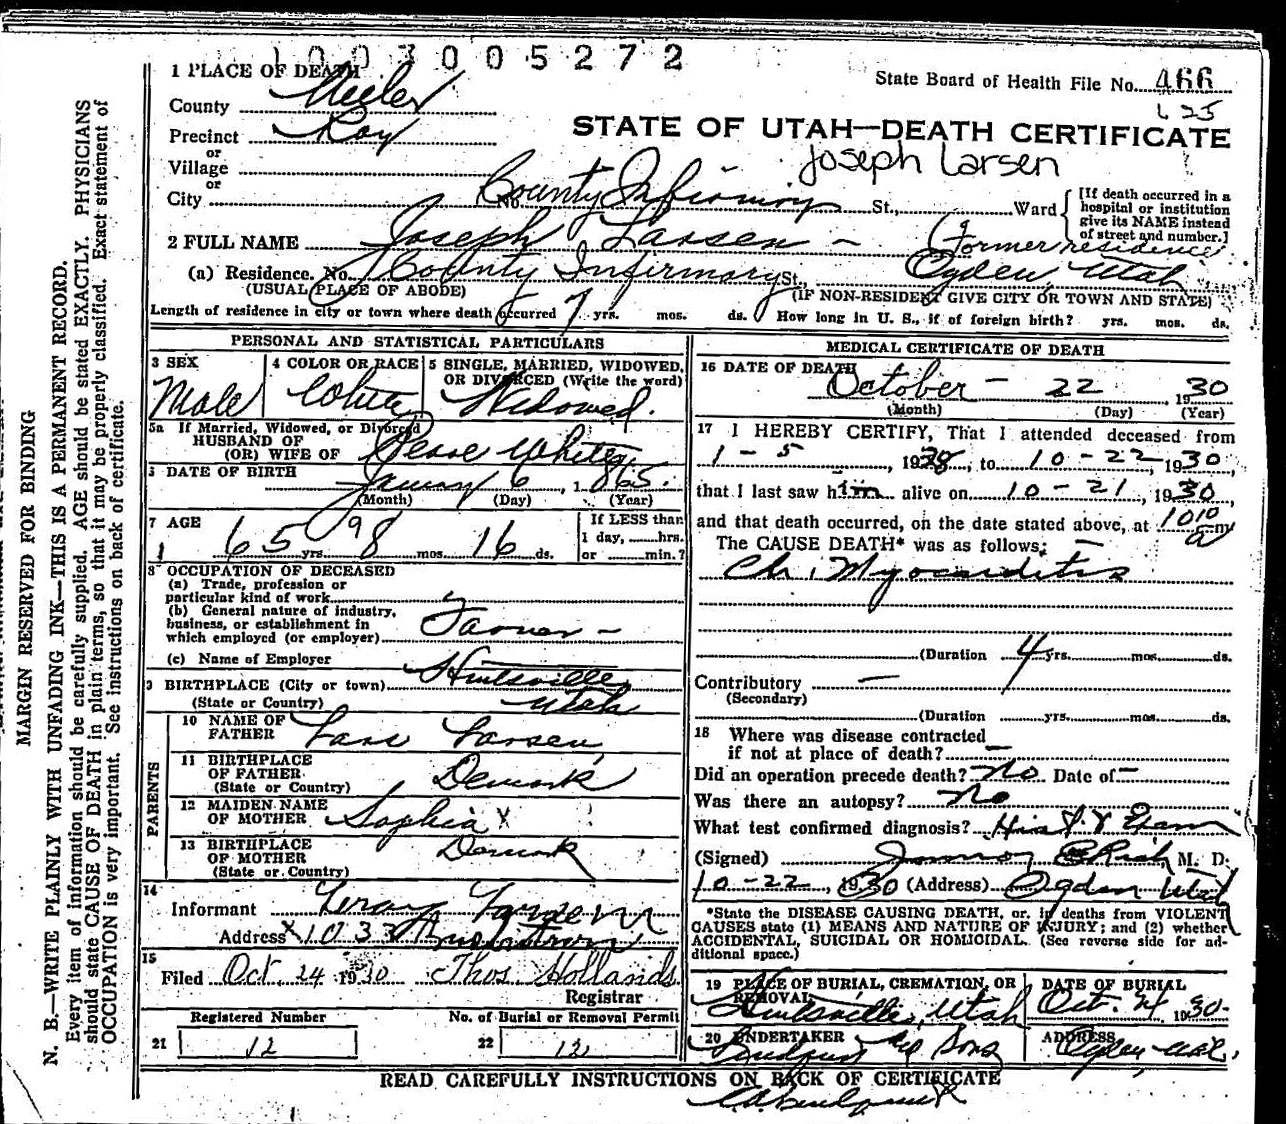 1003005272
1 PLACE OF DEATH
State Board of Health File No. 466
County Weber
Precinct Roy
STATE OF UTAH—DEATH CERTIFICATE
or
Village
Joseph Larsen
or
City No. County Infirmary St., Ward
[If death occurred in a
hospital or institution
give its NAME instead
of street and number.]
2 FULL NAME Joseph Larsen -
Former residence
(a) Residence. No. County Infirmary St., Ogden, Utah
(USUAL PLACE OF ABODE) (IF NON-RESIDENT GIVE CITY OR TOWN AND STATE)
Length of residence in city or town where death occurred 7 yrs. mos. ds. How long in U. S., if of foreign birth? yrs. mos. ds.
PERSONAL AND STATISTICAL PARTICULARS
3 SEX
Male
4 COLOR OR RACE
White
5 SINGLE, MARRIED, WIDOWED,
OR DIVORCED (Write the word)
Widowed.
5a If Married, Widowed, or Divorced
HUSBAND OF
(OR) WIFE OF White
DATE OF BIRTH January 6, 1865.
(Month) (Day) (Year)
7 AGE
65 yrs. 9 mos. 16 ds.
If LESS than
1 day, hrs.
or min.?
8 OCCUPATION OF DECEASED
(a) Trade, profession or
particular kind of work
(b) General nature of industry,
business, or establishment in
which employed (or employer) Farmer -
(c) Name of Employer
BIRTHPLACE (City or town) Huntsville
(State or Country) Utah
PARENTS
10 NAME OF
FATHER Lars Larsen
11 BIRTHPLACE
OF FATHER
(State or Country) Demark
12 MAIDEN NAME
OF MOTHER Sophia X
13 BIRTHPLACE
OF MOTHER
(State or Country) Demark
14
Informant Leroy
Address 1033
15
Filed Oct. 24 1930 Thos Hollands
Registrar
Registered Number No. of Burial or Removal Permit
21 12 22 12
MEDICAL CERTIFICATE OF DEATH
16 DATE OF DEATH
October - 22 1930
(Month) (Day) (Year)
17 I HEREBY CERTIFY, That I attended deceased from
1 - 5, 1928, to 10-22, 1930
that I last saw him alive on 10-21, 1930,
and that death occurred, on the date stated above, at 10 10 a m
The CAUSE DEATH* was as follows:
Ch. Myocarditis
(Duration 4 yrs. mos. ds.
Contributory —
(Secondary)
(Duration yrs. mos. ds.
18 Where was disease contracted
if not at place of death? —
Did an operation precede death? No Date of —
Was there an autopsy? No
What test confirmed diagnosis? Hist & Exam
(Signed) Rich, M. D.
10-22, 1930 (Address) Ogden Utah
*State the DISEASE CAUSING DEATH, or, in deaths from VIOLENT
CAUSES state (1) MEANS AND NATURE OF INJURY; and (2) whether
ACCIDENTAL, SUICIDAL OR HOMICIDAL. (See reverse side for ad-
ditional space.)
19 PLACE OF BURIAL, CREMATION, OR
REMOVAL
Huntsville, Utah
DATE OF BURIAL
Oct. 24 1930.
20 UNDERTAKER
& Sons
ADDRESS
Ogden Utah.
READ CAREFULLY INSTRUCTIONS ON BACK OF CERTIFICATE
MARGIN RESERVED FOR BINDING
N. B.—WRITE PLAINLY WITH UNFADING INK—THIS IS A PERMANENT RECORD.
Every item of information should be carefully supplied. AGE should be stated EXACTLY. PHYSICIANS
should state CAUSE OF DEATH in plain terms, so that it may be properly classified. Exact statement of
OCCUPATION is very important. See instructions on back of certificate.